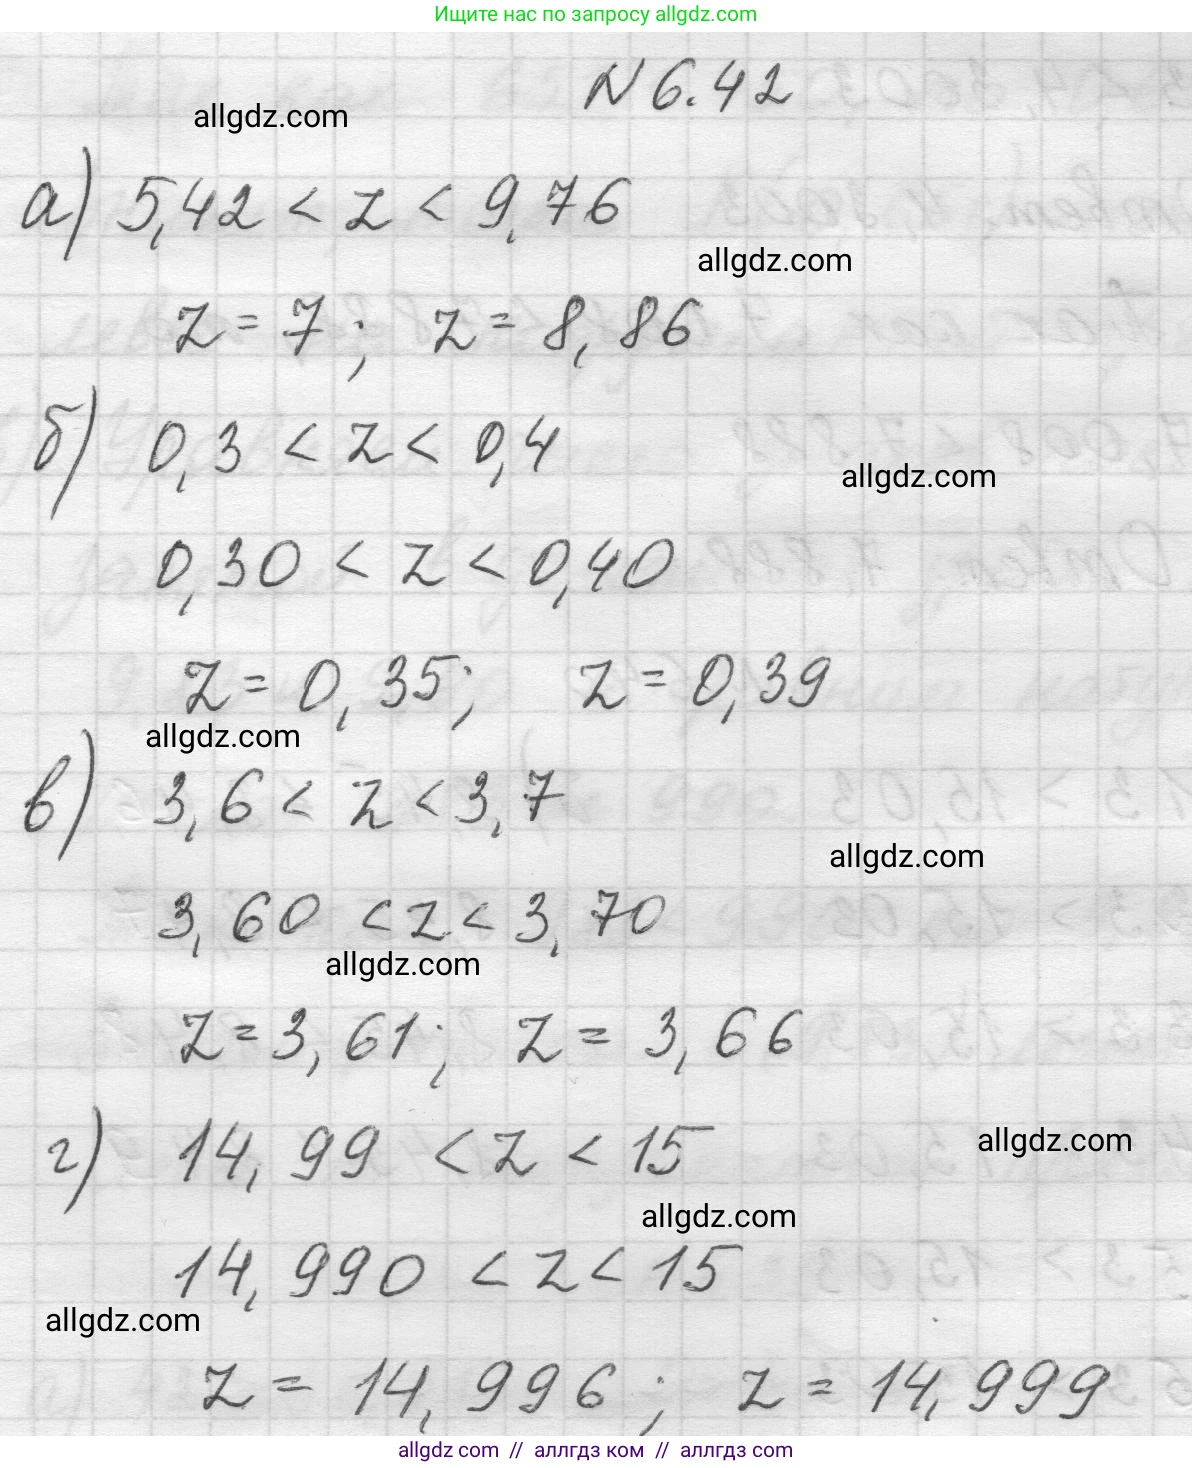 Ищите нас по запросу allgdz.com
N 6.42
allgdz.com
а) 5,42 < z < 9,76
allgdz.com
z = 7; z = 8,86
б) 0,3 < z < 0,4
allgdz.com
0,30 < z < 0,40
z = 0,35; z = 0,39
allgdz.com
в) 3,6 < z < 3,7
allgdz.com
3,60 < z < 3,70
allgdz.com
z = 3,61; z = 3,66
г) 14,99 < z < 15
allgdz.com
allgdz.com
14,990 < z < 15
allgdz.com
z = 14,996; z = 14,999
allgdz.com // аллгдз ком // аллгдз.com